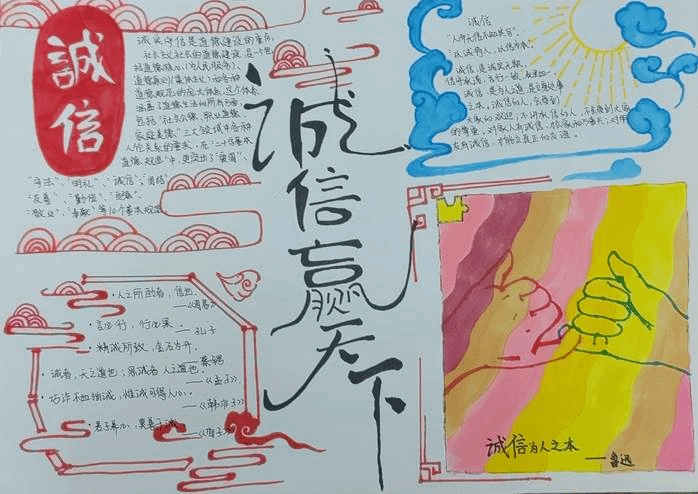 誠信
诚实守信是道德建设的重点，
社会主义社会的道德建设，是一个包
括道德核心（为人民服务）、
道德原则（集体主义）和各种
道德规范的庞大体系，这个体系
涵盖了道德生活的所有方面，
包括“社会公德、职业道德、
家庭美德”三大领域中各种
人伦关系的要求，在“二十位基本
道德规范”中，更突出了“爱国”、
“守法”、“明礼”、“诚信”、“团结”、
“友善”、“勤俭”、“自强”、
“敬业”、“奉献”等10个基本规范。
诚信赢天下
诚信
“人而无信不知其可”
“以诚待人，以信
诚信，是诚实无欺，
信守承诺，言行一致，表里如一。
诚信，是为人之道，是立身处事
之本，诚信的人，会受到
大家的欢迎；不讲诚信的人，不会受到大家
的尊重。对家人有诚信，
友有诚信，才能立真正的友谊。
·人之所助者，信也。
——《周易》
·言必行，行必果。
——孔子
·精诚所致，金石为开。
——蔡锷
·诚者，天之道也；思诚者 人之道也。
——《孟子》
·巧诈不如拙诚，惟诚可得人心。
——《韩非子》
·君子养心，莫善于诚
——《荀子》
诚信为人之本
——鲁迅